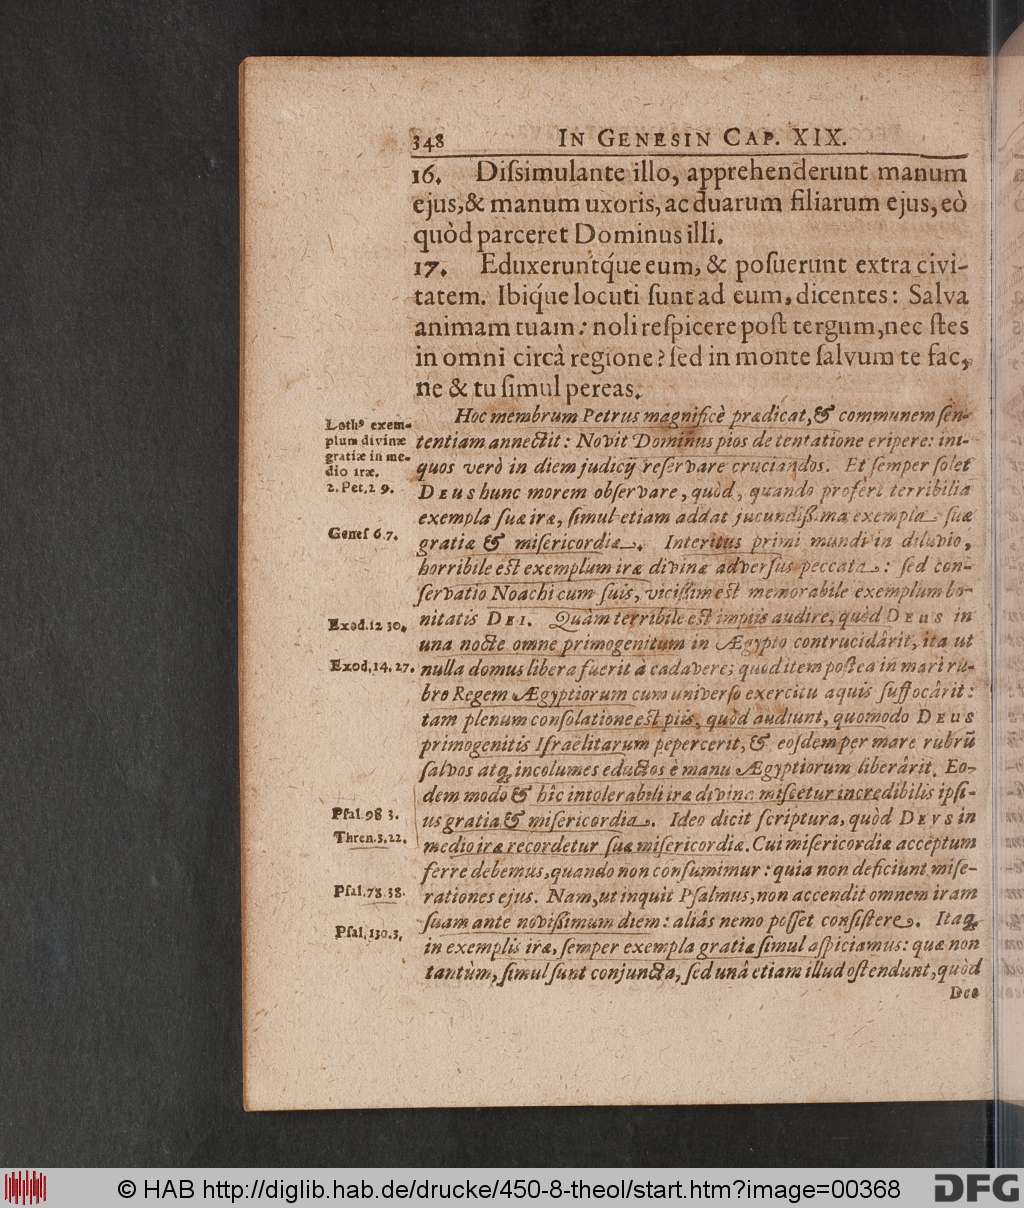 348 IN GENESIN CAP. XIX.
16. Diſsimulante illo, apprehenderunt manum
ejus, & manum uxoris, ac duarum filiarum ejus, eò
quòd parceret Dominus illi.
17. Eduxeruntq́ue eum, & poſuerunt extra civi-
tatem. Ibiq́ue locuti ſunt ad eum, dicentes: Salva
animam tuam: noli reſpicere poſt tergum, nec ſtes
in omni circâ regione? ſed in monte ſalvum te fac,
ne & tu ſimul pereas.
Hoc membrum Petrus magnificè prædicat, & communem ſen-
tentiam annectit: Novit Dominus pios de tentatione eripere: ini-
quos verò in diem judicij reſervare cruciandos. Et ſemper ſolet
DEUS hunc morem obſervare, quòd, quando profert terribilia
exempla ſuæ iræ, ſimul etiam addat jucundiſſima exempla ſuæ
gratiæ & miſericordiæ. Interitus primi mundi in diluvio,
horribile eſt exemplum iræ divinæ adverſus peccata: ſed con-
ſervatio Noachi cum ſuis, viciſſim eſt memorabile exemplum bo-
nitatis DEI. Quàm terribile eſt impiis audire, quòd DEUS in
una nocte omne primogenitum in Ægypto contrucidârit, ita ut
nulla domus libera fuerit à cadavere; quod item poſtea in mari ru-
bro Regem Ægyptiorum cum univerſo exercitu aquis ſuffocârit:
tam plenum conſolatione eſt piis, quòd audiunt, quomodo DEUS
primogenitis Iſraelitarum pepercerit, & eoſdem per mare rubrū
ſalvos atq́, incolumes eductos è manu Ægyptiorum liberârit. Eo-
dem modo & hîc intolerabili iræ divinæ miſcetur incredibilis ipſi-
us gratia & miſericordia. Ideo dicit ſcriptura, quòd DEVS in
medio iræ recordetur ſuæ miſericordiæ. Cui miſericordiæ acceptum
ferre debemus, quando non conſumimur: quia non deficiunt miſe-
rationes ejus. Nam, ut inquit Pſalmus, non accendit omnem iram
ſuam ante noviſſimum diem: aliâs nemo poſſet conſiſtere. Itaq́,
in exemplis iræ, ſemper exempla gratiæ ſimul aſpiciamus: quæ non
tantùm, ſimul ſunt conjuncta, ſed unâ etiam illud oſtendunt, quòd
Deo
Lothꝰ exem-
plum divinæ
gratiæ in me-
dio iræ.
2. Pet, 2 9.
Geneſ 6 7.
Exod. 12 30.
Exod, 14, 27.
Pſal. 98 3.
Thren. 3, 22.
Pſal. 78. 38.
Pſal, 130. 3,
© HAB http://diglib.hab.de/drucke/450-8-theol/start.htm?image=00368
DFG